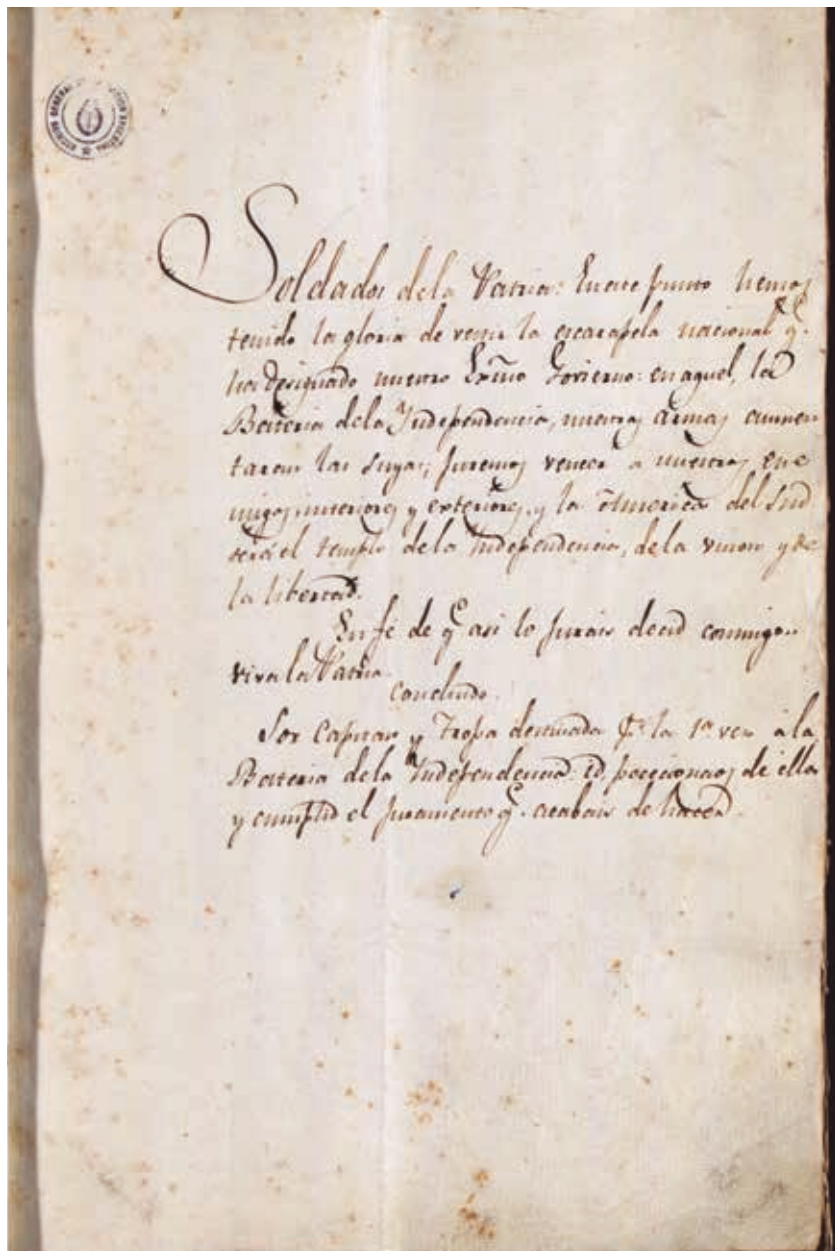 Soldados dela Patria: En este punto hemos
tenido la gloria de vestir la escarapela nacional q.e
ha designado nuestro Exmo Govierno: en aquel, la
Bateria dela Independencia, nuestras armas aumen
taran las suyas; juremos vencer a nuestros ene
migos interiores y exteriores, y la America del Sud
será el templo dela Independencia, dela union y de
la libertad.
En fe de q.e asi lo jurais decid conmigo..
viva la Patria.
Concluido.
Sor Capitan y Tropa destinada p.r la 1.a vez à la
Bateria dela Independencia: id, posecionaos de ella
y cumplid el juramento q.e acabais de hacer.